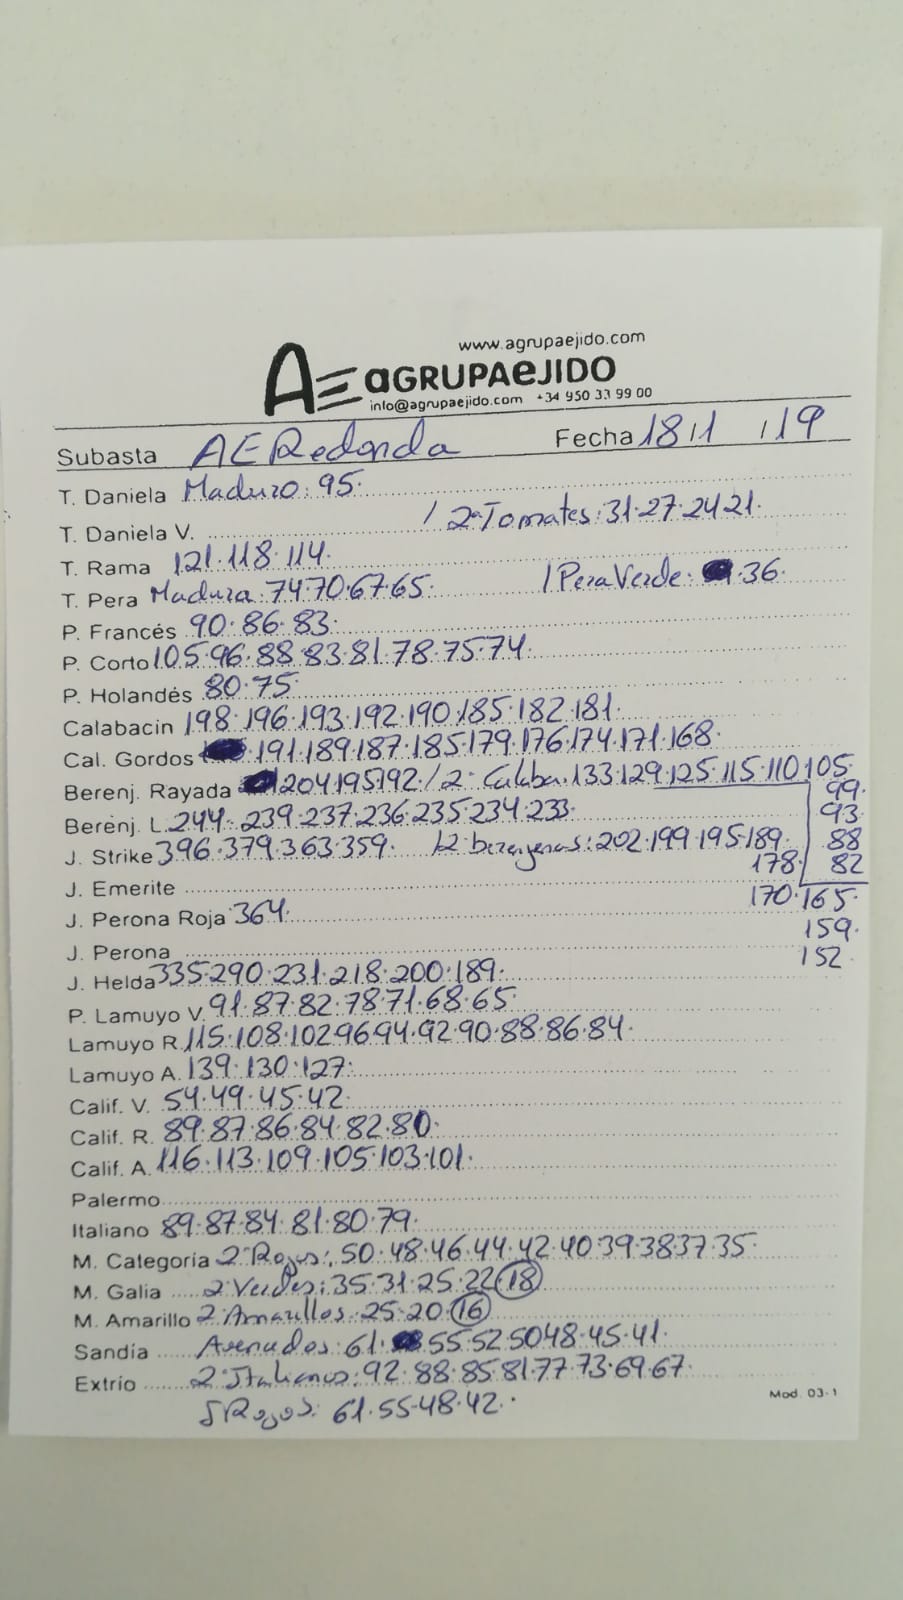 www.agrupaejido.com
AE AGRUPAEJIDO
info@agrupaejido.com +34 950 33 99 00
Subasta AE Redonda Fecha 18/1 /19
T. Daniela Maduro: 95.
T. Daniela V. / 2ª Tomates: 31.27.24.21.
T. Rama 121.118.114.
T. Pera Madura: 74.70.67.65. / Pera Verde: .36.
P. Francés 90.86.83.
P. Corto 105.96.88.83.81.78.75.74.
P. Holandés 80.75.
Calabacin 198.196.193.192.190.185.182.181.
Cal. Gordos .191.189.187.185.179.176.174.171.168.
Berenj. Rayada 204.195.192. / 2ª Calaba. 133.129.125.115.110.105.
99.
Berenj. L. 244. 239.237.236.235.234.233. 93.
J. Strike 396.379.363.359. / 2 berenjenas: 202.199.195.189. 88
178. 82
J. Emerite 170.165.
J. Perona Roja 364. 159.
J. Perona 152
J. Helda 335.290.231.218.200.189.
P. Lamuyo V. 91.87.82.78.71.68.65.
Lamuyo R. 115.108.102.96.94.92.90.88.86.84.
Lamuyo A. 139.130.127.
Calif. V. 54.49.45.42.
Calif. R. 89.87.86.84.82.80.
Calif. A. 116.113.109.105.103.101.
Palermo
Italiano 89.87.84.81.80.79.
M. Categoría 2ª Rojos: 50.48.46.44.42.40.39.38.37.35.
M. Galia 2 Verdes: 35.31.25.22.18
M. Amarillo 2 Amarillos: 25.20.16
Sandía Asurados: 61. 55.52.50.48.45.41.
Extrío 2 Italianos: 92.88.85.81.77.73.69.67.
Rojos: 61.55.48.42.
Mod. 03-1